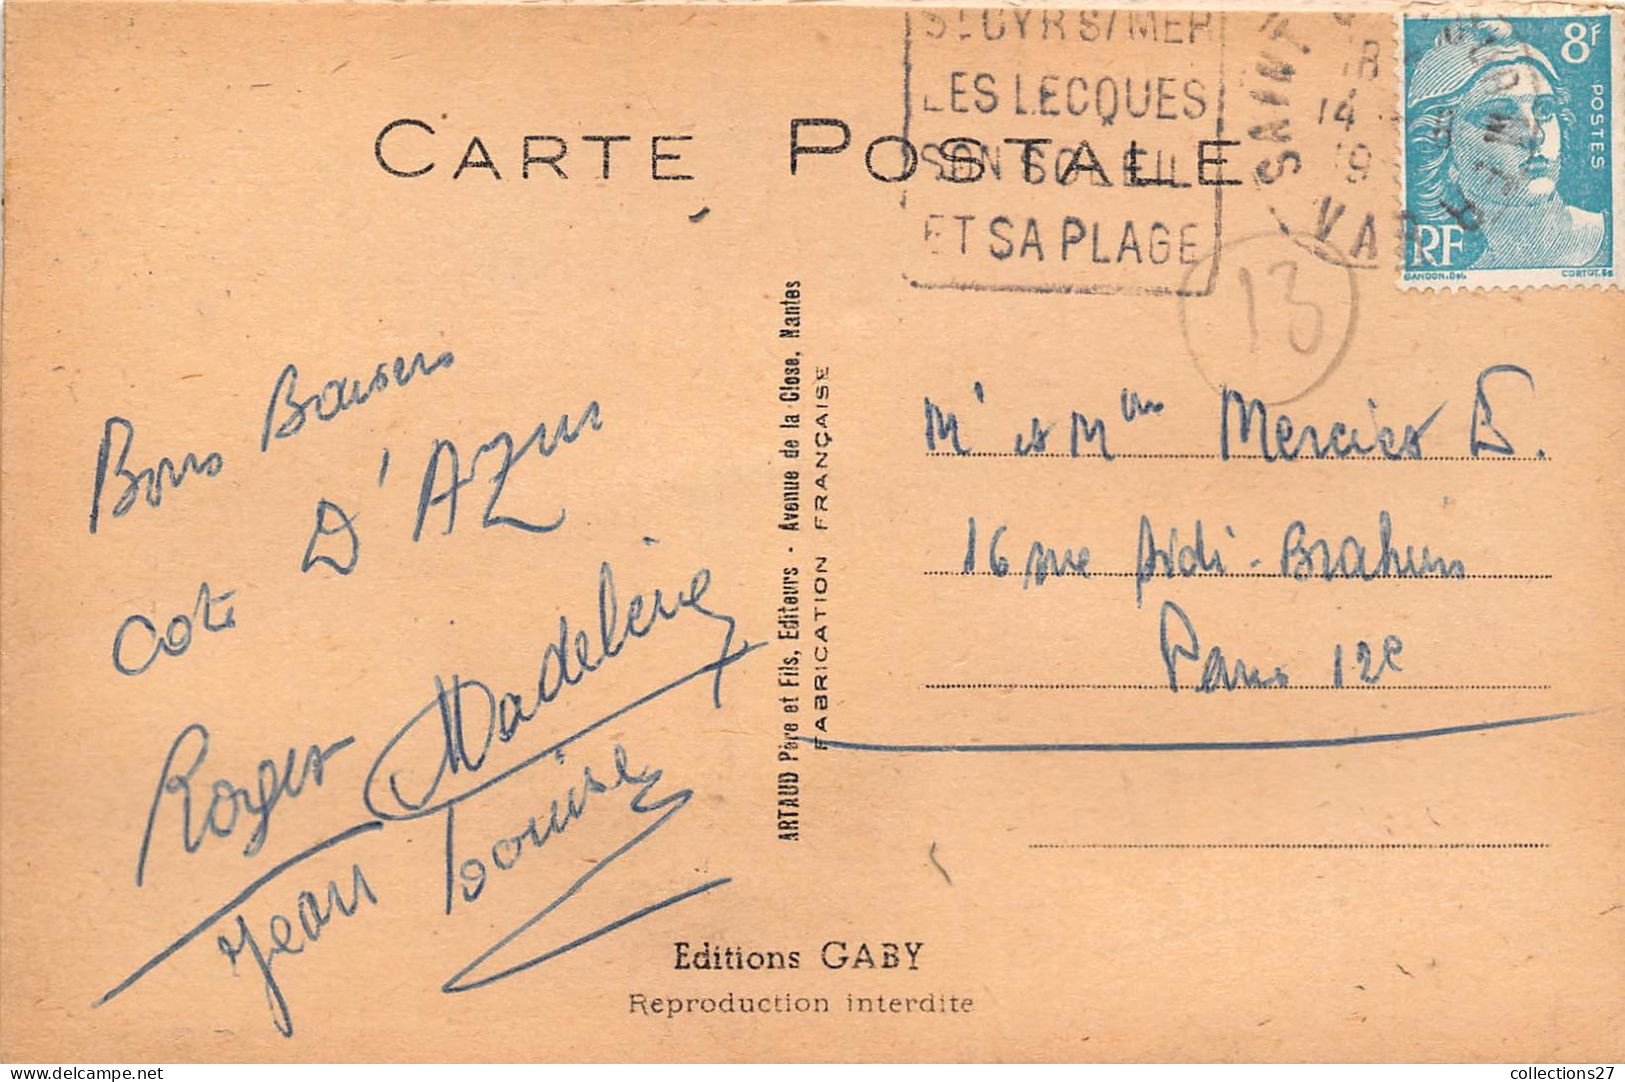 CARTE POSTALE
ST CYR S/MER
LES LECQUES
SON SOLEIL
ET SA PLAGE
18
14
19
SAINT
SUR MER
VAR
8F
POSTES
RF
GANDON.Del.
CORTOT.Sc
13
Bons Baisers
Cote D'Azur
Roger Madeleine
Jean Louise
ARTAUD Père et Fils, Editeurs - Avenue de la Close, Nantes
FABRICATION FRANÇAISE
Mr et Mme Mercier D.
16 rue Sidi-Brahim
Paris 12e
Editions GABY
Reproduction interdite
collections27